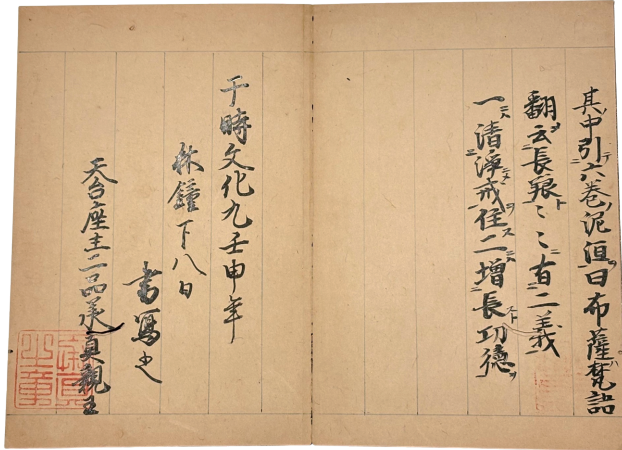 其中引六巻泥洹曰布薩梵語
翻云長〻〻有二義
一清淨戒住二増長功徳
于時文化九壬申年
林鐘下八日
書寫之
天台座主二品承真親王